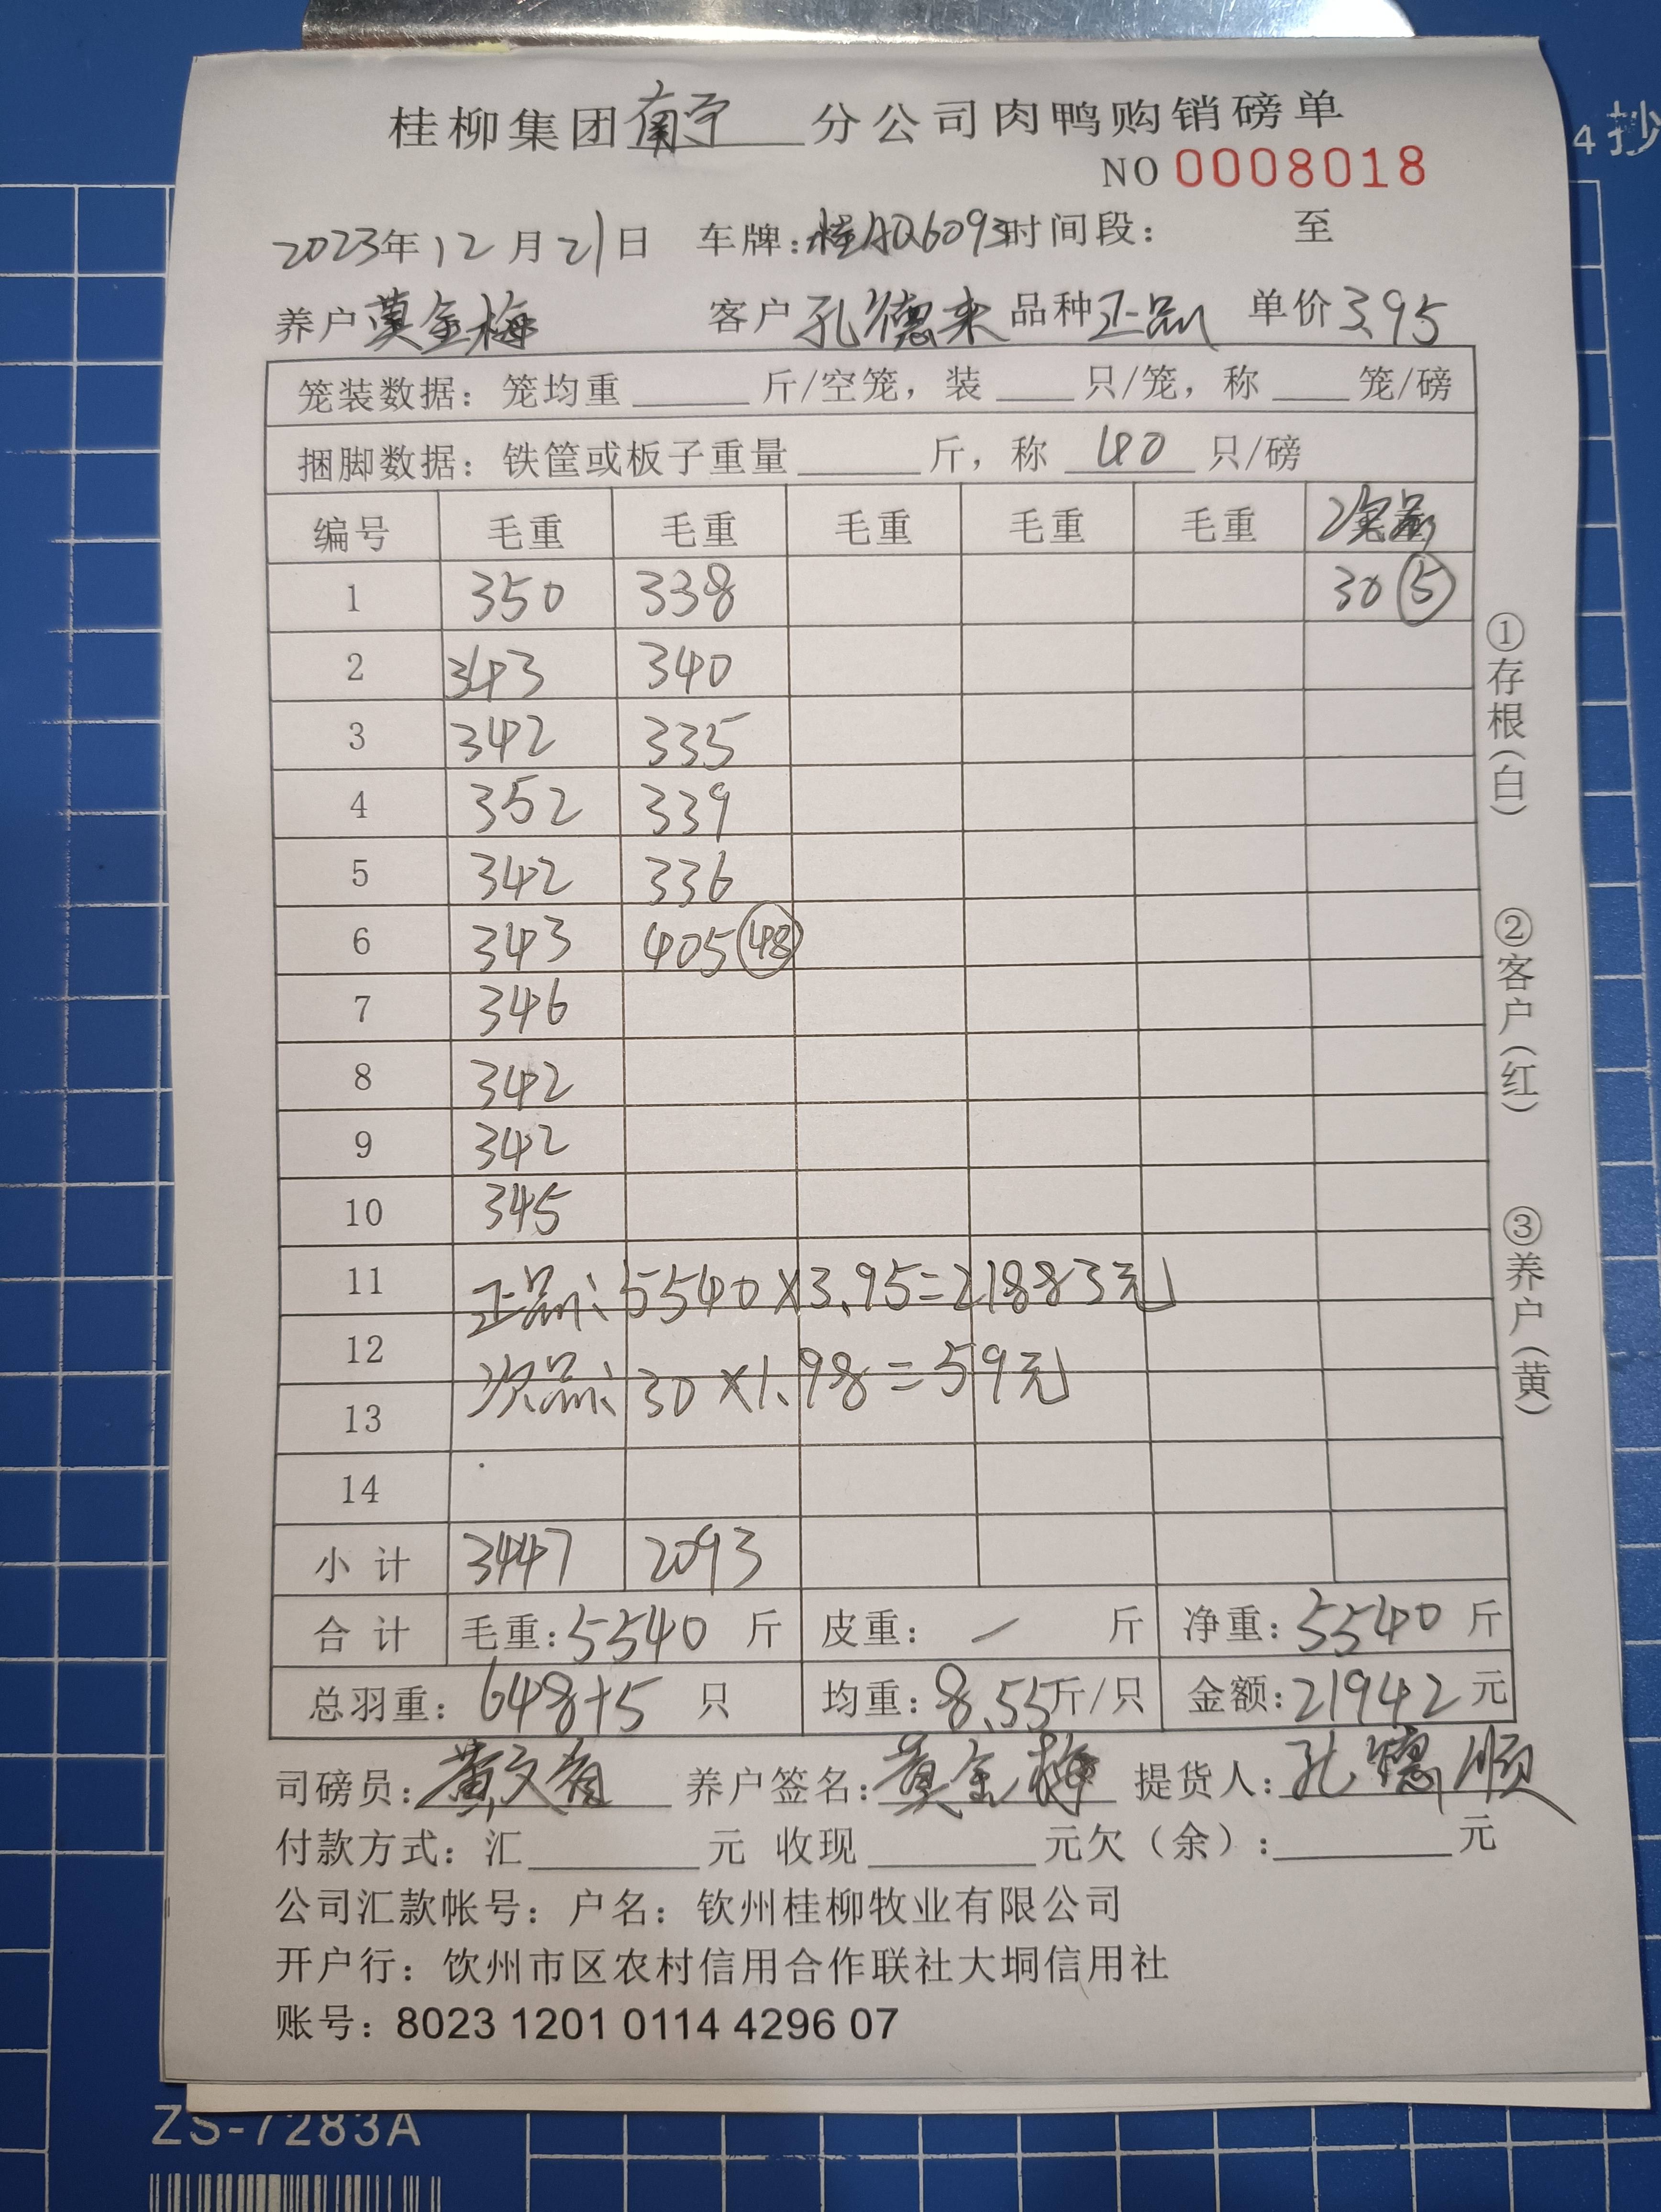 4抄
桂柳集团南宁分公司肉鸭购销磅单
NO 0008018
2023年12月21日 车牌:桂AQ6093时间段: 至
养户黄金梅 客户孔德来 品种正品 单价3.95
笼装数据: 笼均重______斤/空笼, 装____只/笼, 称____笼/磅
捆脚数据: 铁筐或板子重量______斤, 称 40 只/磅
编号 毛重 毛重 毛重 毛重 毛重 次品
1 350 338 30 ⑤
2 343 340
3 342 335
4 352 339
5 342 336
6 343 405 ㊽
7 346
8 342
9 342
10 345
11 正品: 5540×3.95=21883元
12
次品: 30×1.98=59元
13
14
小计 3447 2093
合计 毛重:5540斤 皮重: / 斤 净重:5540斤
总羽重: 648+5 只 均重:8.55斤/只 金额:21942元
司磅员:黄文 养户签名:黄金梅 提货人:孔德顺
付款方式: 汇______元 收现______元欠(余):______元
公司汇款帐号: 户名: 钦州桂柳牧业有限公司
开户行: 钦州市区农村信用合作联社大垌信用社
账号: 8023 1201 0114 4296 07
①存根(白)
②客户(红)
③养户(黄)
ZS-7283A